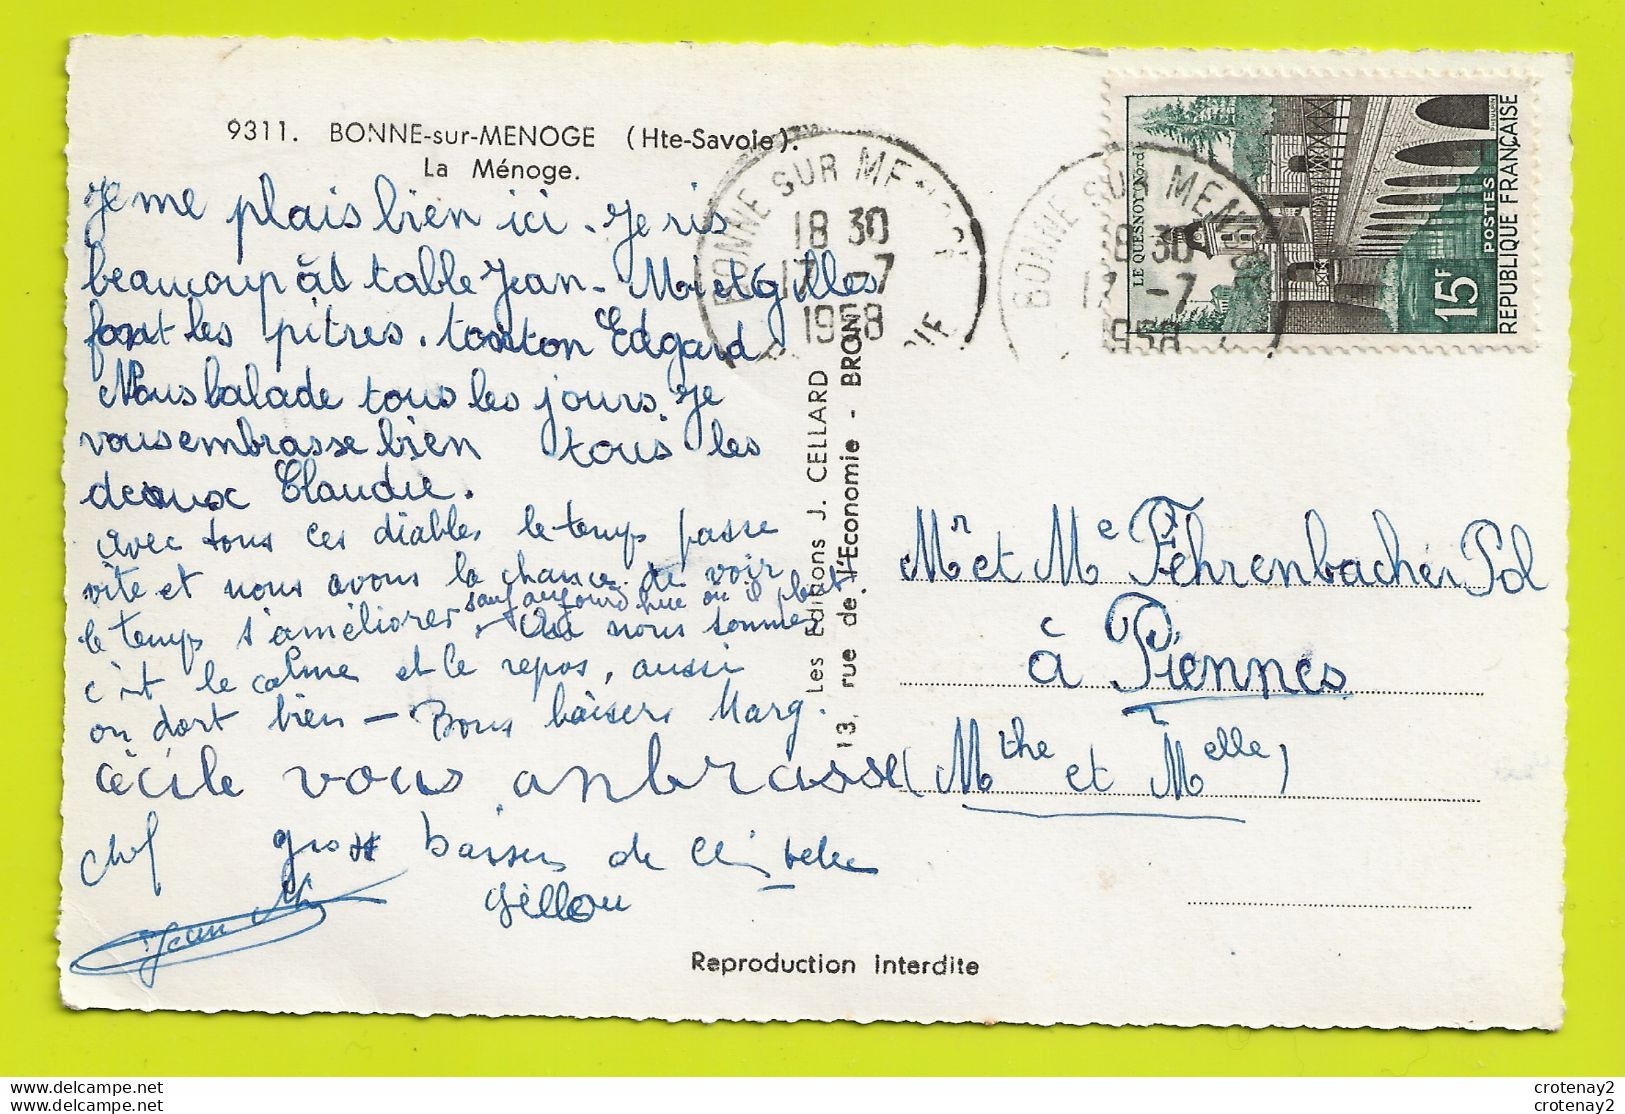 9311. BONNE-sur-MENOGE (Hte-Savoie).
La Ménoge.
Je me plais bien ici. Je ris
beaucoup à table Jean-M et gilles
font les pitres. tonton Edgard
Nous balade tous les jours. Je
vous embrasse bien tous les
deaux Claudie.
Avec tous ces diables le temps passe
vite et nous avons la chance de voir
le temps s'améliorer sauf aujourd'hui où il pleut.
nous sommes
c'est le calme et le repos, aussi
on dort bien — Bons baisers Marg.
Cécile vous anbrasse
Chef
gross baisers de
Gillou
Jean M
BONNE SUR MENOGE
18 30
17 -7
1958
BONNE SUR MENOGE
18 30
17 -7
1958
LE QUESNOY Nord
15F
POSTES
REPUBLIQUE FRANÇAISE
Les Editions J. CELLARD
13, rue de l'Economie - BRON
Mr et Me Fehrenbacher Pol
à Piennes
(Mthe et Melle)
Reproduction interdite
crotenay2
crotenay2
crotenay2
crotenay2